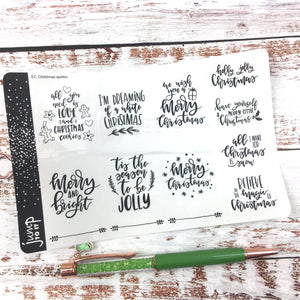 FC Christmas quotes
all you
need is
LOVE
and
CHRISTMAS
cookies
I'M DREAMING
OF A WHITE
CHRISTMAS
we wish
you a
Merry
Christmas
holly jolly
Christmas
have yourself
a merry little
Christmas
all
I WANT FOR
Christmas
is
Merry
and
bright
'tis the
SEASON
TO BE
JOLLY
Merry
Christmas
BELIEVE
IN THE
magic OF
Christmas
jump
TO IT